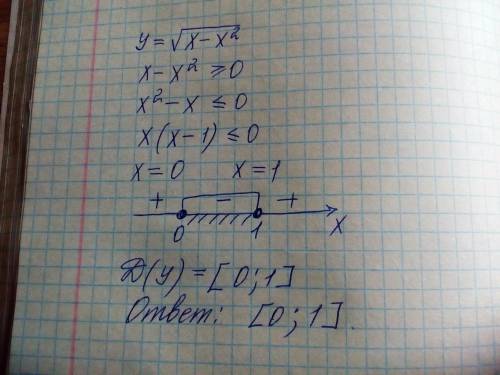 y = √(x - x²)
x - x² ⩾ 0
x² - x ≤ 0
x(x - 1) ≤ 0
x = 0 x = 1
+ - +
0 1 x
D(y) = [0; 1]
Ответ: [0; 1].